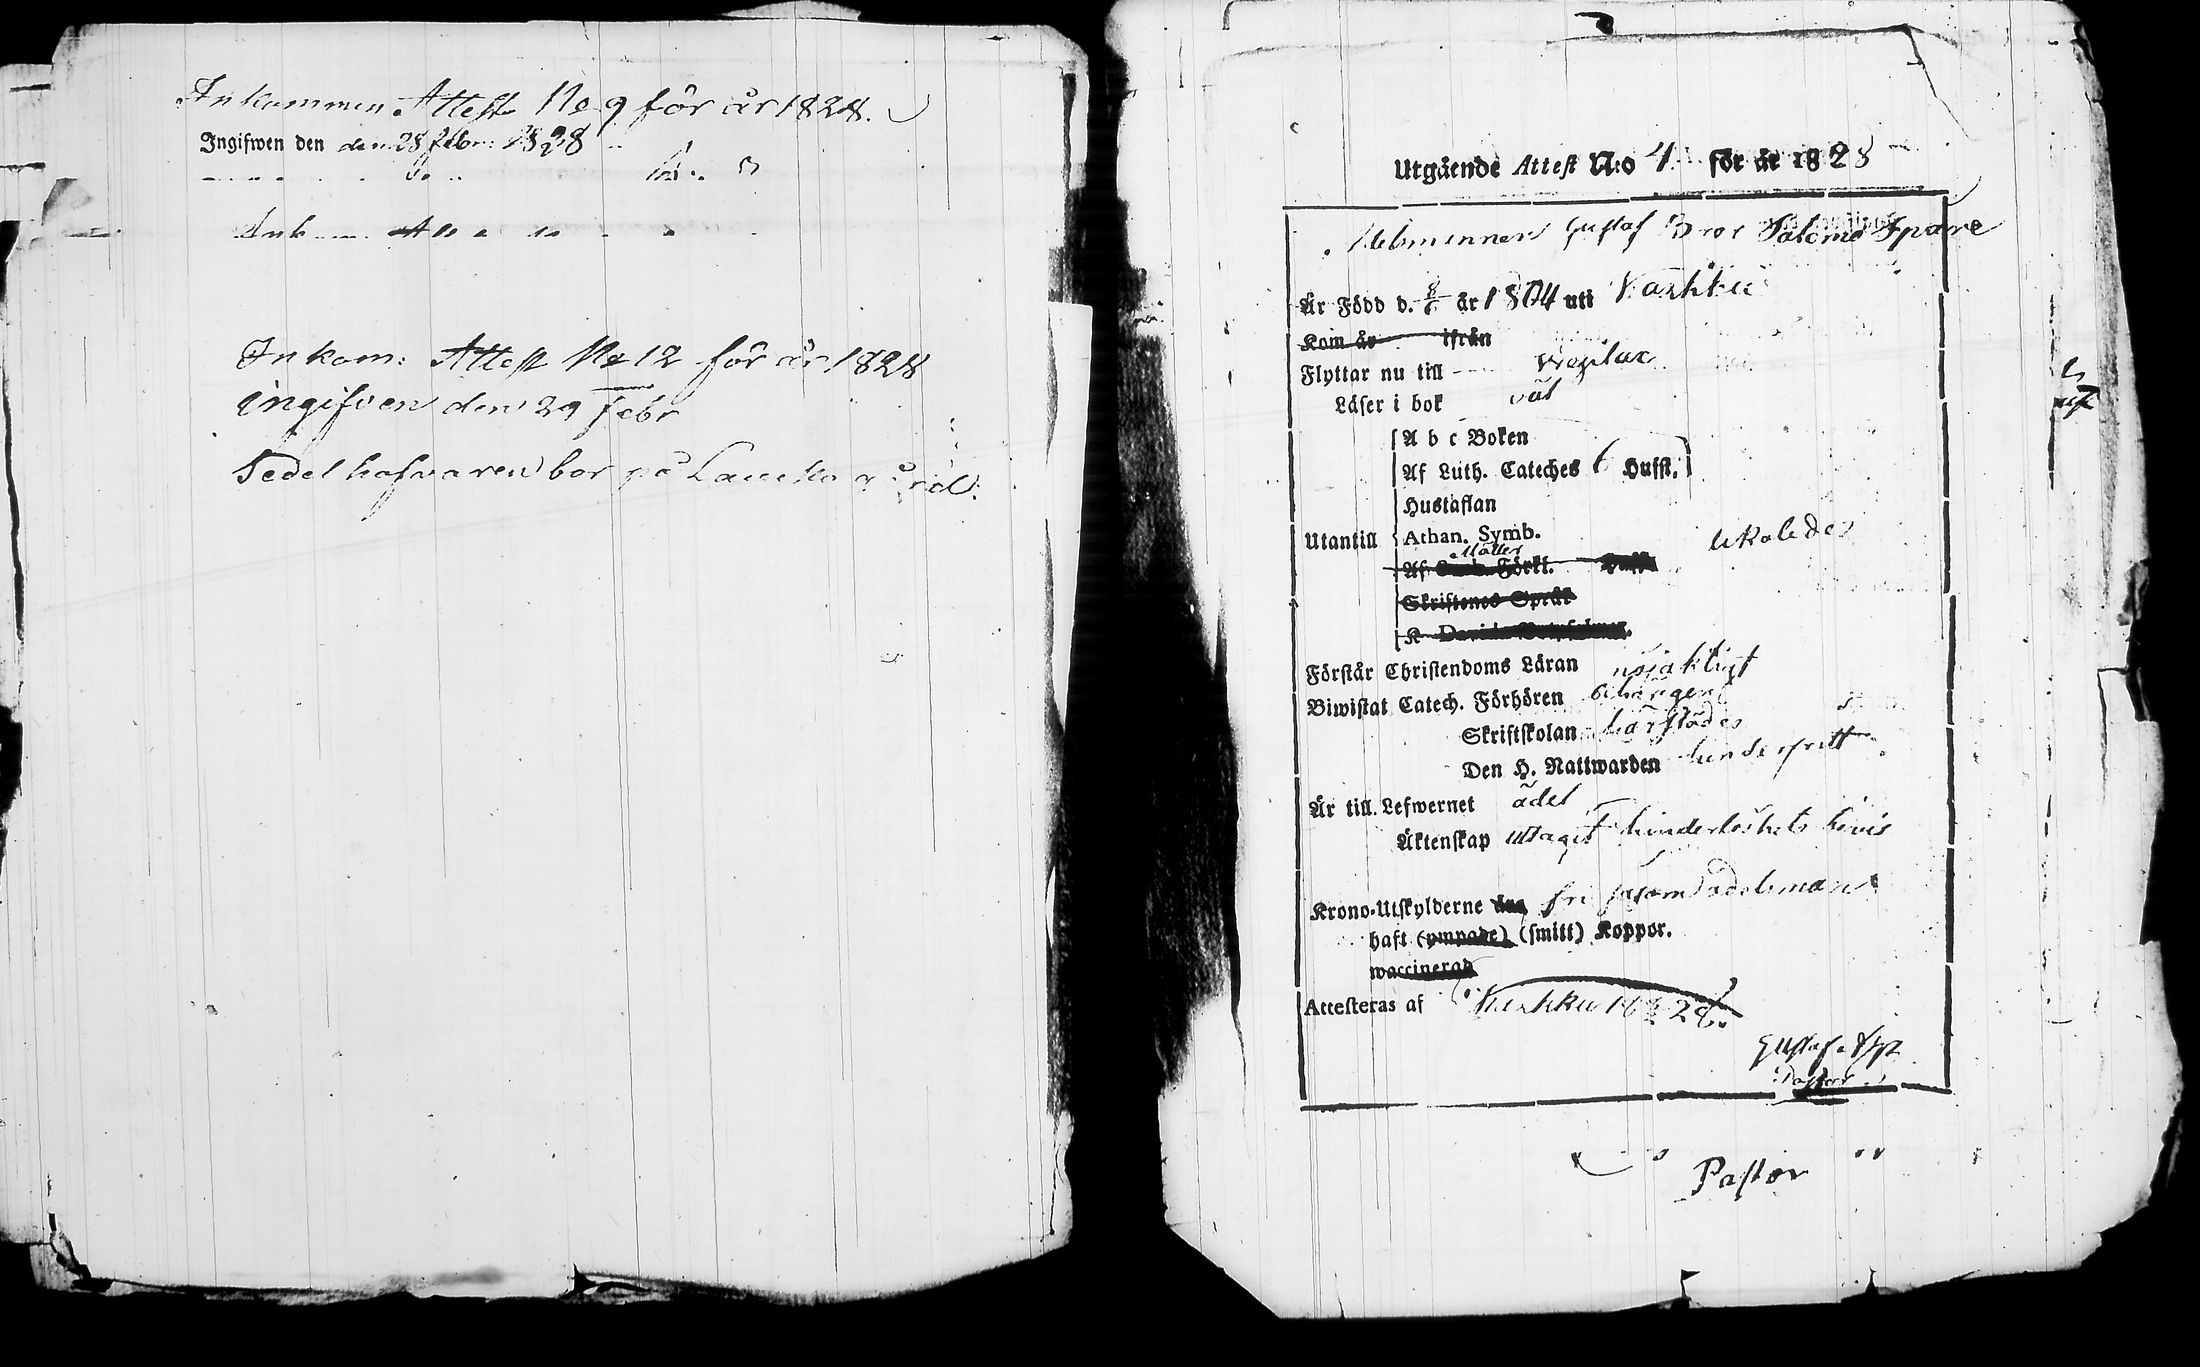 Inkommen Attest No 9 för år 1828.
Ingifwen den den 28 febr: 1828
Inkom: Attest No 12 för år 1828
ingifven den 29 Febr
Sedelhafvaren bor på
Utgående Attest N:o 4 för år 1828
Adelsmannen Gustaf Bror Salomo Spare
Är Född d. 8/6 år 1804 uti Vashku
Kom år ifrån
Flyttar nu till
Läser i bok väl
A b c Boken
Af Luth. Cateches 6 Hufst.
Hustaflan
Utantill Athan. Symb. likaledes
Möllers
Af Förkl.
Skriftenes Språk
K Davids Botpsalmer.
Förstår Christendoms Läran nöjaktigt
Biwistat Catech. Förhören
Skriftskolan härstädes
Den H. Nattwarden hinderfritt
Är till Lefwernet ädel
Äktenskap uttagit hinderlöshets bevis
Krono-Utskylderne fri såsom adelsman
haft (ympade) (smitt) Koppor.
waccinerad
Attesteras af
Gustaf
Pastor
Pastor